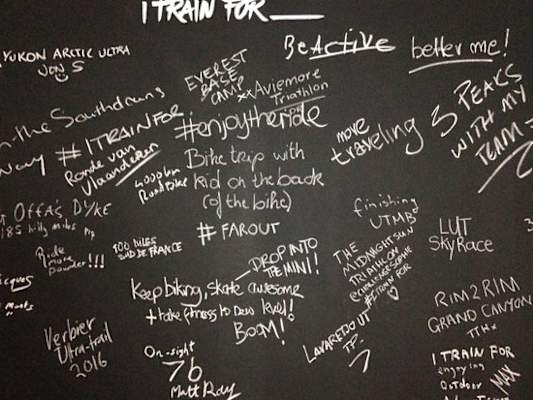 I TRAIN FOR ___
YUKON ARCTIC ULTRA
JON S
BeACTIVE
better me!
EVEREST
BASE
CAMP xx
Aviemore
Triathlon
#ITRAINFOR
Ronde van
Vlaanderen
#enjoytheride
move
traveling
3 PEAKS
WITH MY
TEAM
4000km
Roadbike
Bike trip with
kid on the back
(of the bike)
# FAROUT
OFFA'S DYKE
185 hilly miles
Ride
more
powder!!!
100 MILES
SUD DE FRANCE
finishing
UTMB
THE
MIDNIGHTSUN
TRIATHLON
#ITRAIN FOR
LUT
SKYRACE
DROP INTO
THE MINI!
Keep biking, skate awesome
+ take fitness to Dew level!
BOOM!
RIM 2 RIM
GRAND CANYON
Verbier
Ultra-trail
2016
On-sight
7b
Matt Ray
LAVAREDO UT
I TRAIN FOR
enjoying
outdoor
MAX